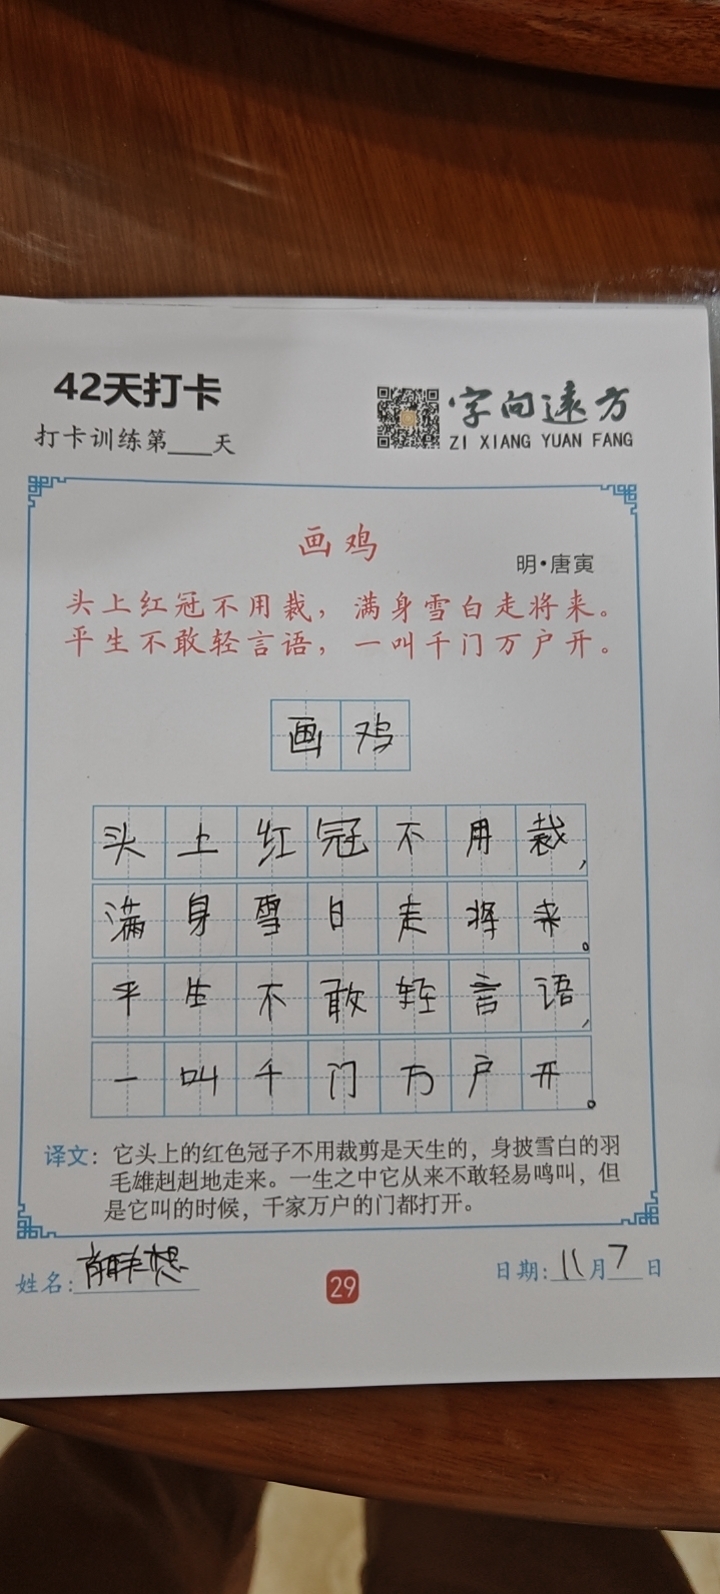 42天打卡
打卡训练第___天
字向远方
ZI XIANG YUAN FANG
画鸡
明·唐寅
头上红冠不用裁，满身雪白走将来。
平生不敢轻言语，一叫千门万户开。
画鸡
头上红冠不用裁，
满身雪白走将来。
平生不敢轻言语，
一叫千门万户开。
译文：它头上的红色冠子不用裁剪是天生的，身披雪白的羽
毛雄赳赳地走来。一生之中它从来不敢轻易鸣叫，但
是它叫的时候，千家万户的门都打开。
姓名：
29
日期：11月7日